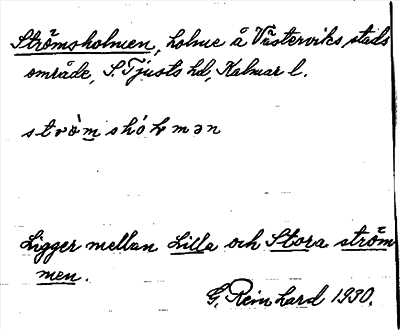 Strömsholmen, holme å Västerviks stads
område, S. Tjusts hd, Kalmar l.
strö̀mshólmən
Ligger mellan Lilla och Stora ström
men.
G. Reinhard 1930.